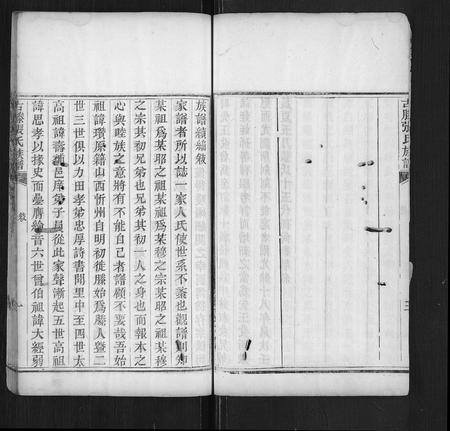 古滕張氏族譜
三
族譜續編敍
家譜者所以誌一家人氏使世系不紊也觀譜則知
某祖爲某昭之祖某穆之宗某昭之祖某穆
之宗其初兄弟也兄弟其初一人之身也而報本之
心與睦族之意將有不能自已者譜顧不要哉吾始
祖諱瓚原籍山西忻州自明初徙滕始爲滕人暨二
世三世俱以力田孝弟忠厚詩書聞里中至四世太
高祖諱喬新邑庠弟子員從此家聲漸起五世高祖
諱思孝以掾史而臺膺綸音六世曾伯祖諱大經弱
古滕張氏族譜
敍
一